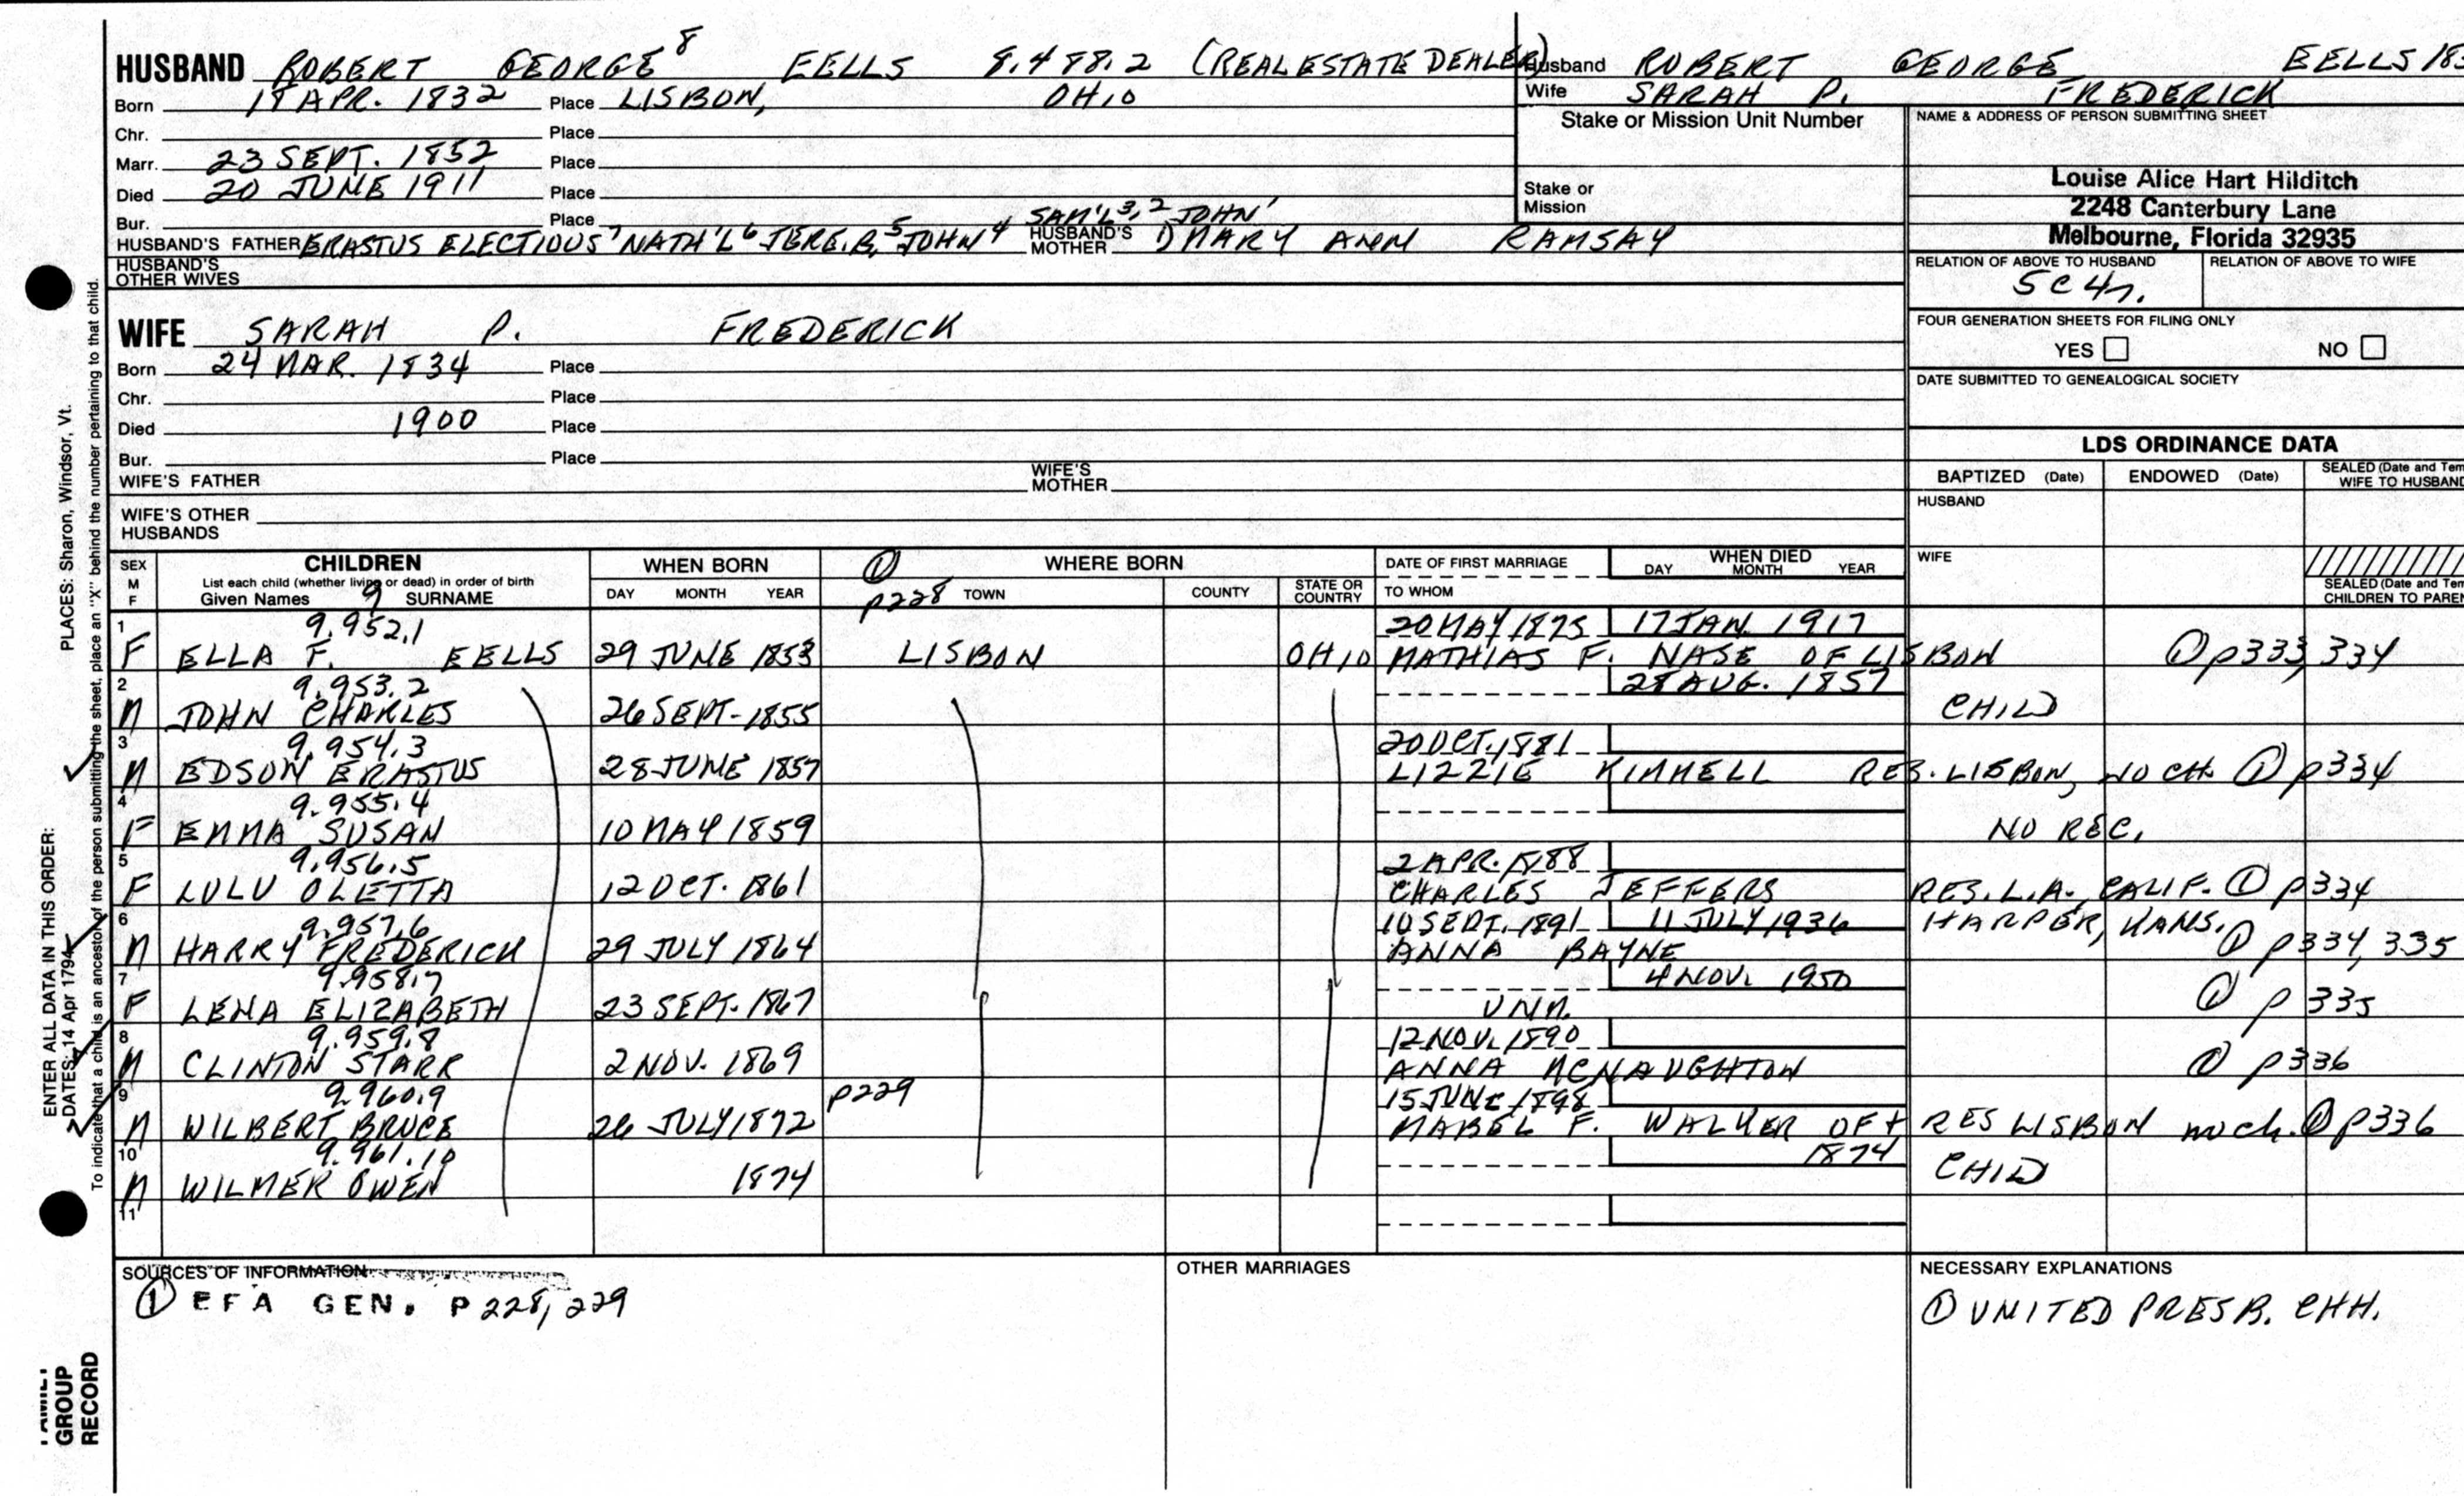 HUSBAND ROBERT GEORGE 8 EELLS 8.488.2 (REAL ESTATE DEALER)
Born 18 APR. 1832 Place LISBON, OHIO
Chr. Place
Marr. 23 SEPT. 1852 Place
Died 20 JUNE 1911 Place
Bur. Place
SAM'L 3,2 JOHN 1
HUSBAND'S FATHER ERASTUS ELECTIOUS 7 NATH'L 6 JERE. B. 5 JOHN 4 HUSBAND'S MOTHER 1) MARY ANN RAMSAY
HUSBAND'S OTHER WIVES
Husband ROBERT GEORGE EELLS 183
Wife SARAH P. FREDERICK
Stake or Mission Unit Number
Stake or Mission
NAME & ADDRESS OF PERSON SUBMITTING SHEET
Louise Alice Hart Hilditch
2248 Canterbury Lane
Melbourne, Florida 32935
RELATION OF ABOVE TO HUSBAND RELATION OF ABOVE TO WIFE
5C4r.
FOUR GENERATION SHEETS FOR FILING ONLY
YES NO
DATE SUBMITTED TO GENEALOGICAL SOCIETY
WIFE SARAH P. FREDERICK
Born 24 MAR. 1834 Place
Chr. Place
Died 1900 Place
Bur. Place
WIFE'S FATHER WIFE'S MOTHER
WIFE'S OTHER HUSBANDS
LDS ORDINANCE DATA
BAPTIZED (Date) ENDOWED (Date) SEALED (Date and Tem WIFE TO HUSBAND
HUSBAND
WIFE
SEALED (Date and Tem CHILDREN TO PAREN
SEX M F
CHILDREN
List each child (whether living or dead) in order of birth
Given Names 9 SURNAME
WHEN BORN
DAY MONTH YEAR
① p228
WHERE BORN
TOWN COUNTY STATE OR COUNTRY
DATE OF FIRST MARRIAGE
TO WHOM
WHEN DIED
DAY MONTH YEAR
1 9.952.1 20 MAY 1875 17 JAN. 1917
F ELLA F. EELLS 29 JUNE 1853 LISBON OHIO MATHIAS F. NASE OF LISBON ① p333, 334
2 9.953.2 28 AUG. 1857
M JOHN CHARLES 26 SEPT. 1855 CHILD
3 9.954.3 20 OCT. 1881
M EDSON ERASTUS 28 JUNE 1857 LIZZIE KIMMELL RES. LISBON, NO CH. ① p334
4 9.955.4
F EMMA SUSAN 10 MAY 1859 NO REC.
5 9.956.5 2 APR. 1888
F LULU OLETTA 12 OCT. 1861 CHARLES JEFFERS RES. L.A., CALIF. ① p334
6 9.957.6 10 SEPT. 1891 11 JULY 1936 HARPER, KANS.
M HARRY FREDERICK 29 JULY 1864 ANNA BAYNE ① p334, 335
7 9.958.7 4 NOV. 1950
F LENA ELIZABETH 23 SEPT. 1867 UNM. ① p335
8 9.959.8 12 NOV. 1890
M CLINTON STARR 2 NOV. 1869 ANNA MCNAUGHTON ① p336
9 9.960.9 p229 15 JUNE 1898
M WILBERT BRUCE 26 JULY 1872 MABEL F. WALKER OF + RES LISBON no ch. ① p336
10 9.961.10 1874
M WILMER OWEN 1874 CHILD
11
SOURCES OF INFORMATION
① EFA GEN. P 228, 229
OTHER MARRIAGES
NECESSARY EXPLANATIONS
① UNITED PRESB. CHH.
PLACES: Sharon, Windsor, Vt.
ENTER ALL DATA IN THIS ORDER:
DATES: 14 Apr 1794
To indicate that a child is an ancestor of the person submitting the sheet, place an "X" behind the number pertaining to that child.
FAMILY GROUP RECORD